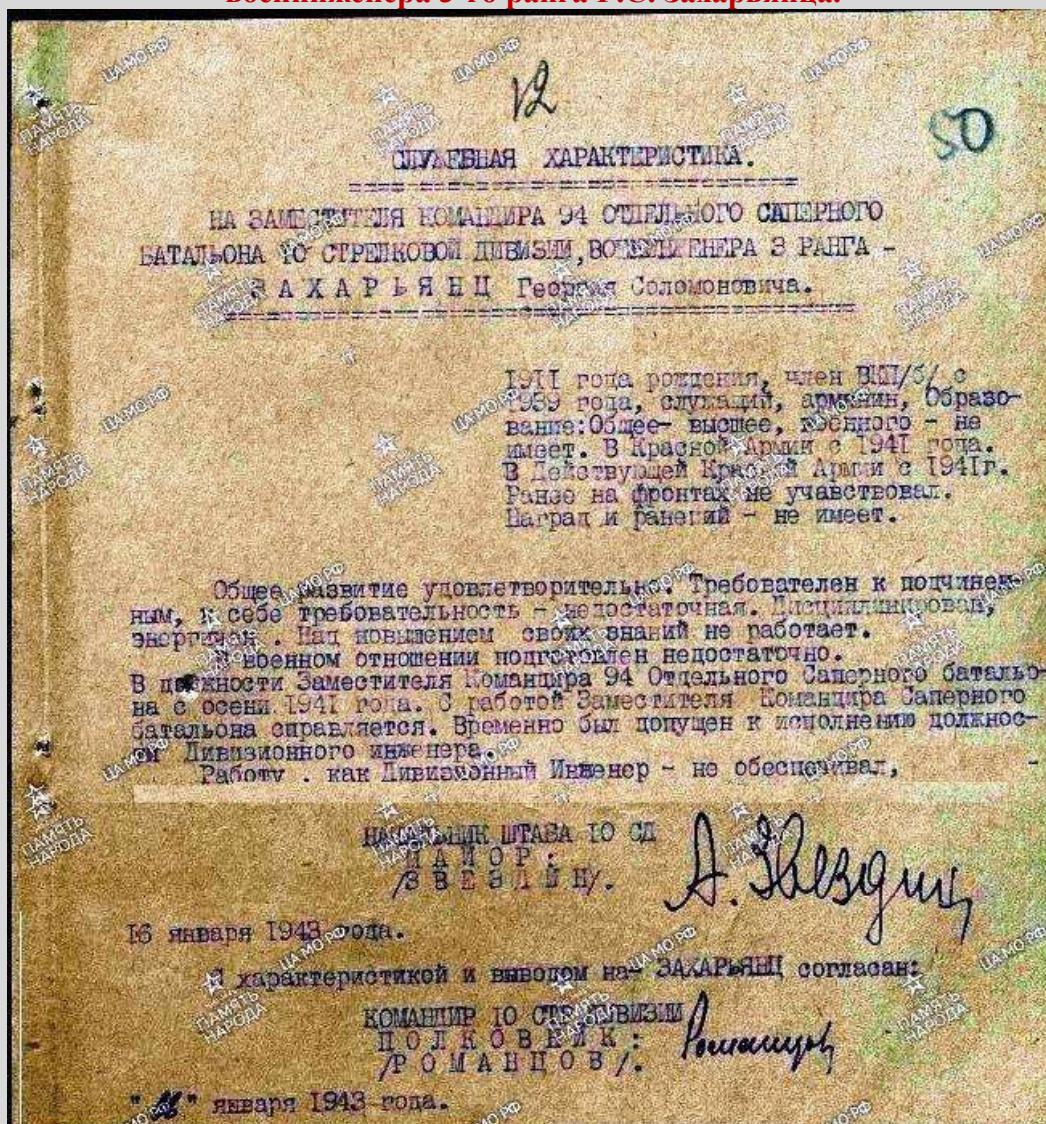 военинженера 3-го ранга Г.С. Захарьянца.
12
50
СЛУЖЕБНАЯ ХАРАКТЕРИСТИКА.
НА ЗАМЕСТИТЕЛЯ КОМАНДИРА 94 ОТДЕЛЬНОГО САПЕРНОГО
БАТАЛЬОНА 10 СТРЕЛКОВОЙ ДИВИЗИИ, ВОЕНИНЖЕНЕРА 3 РАНГА -
З А Х А Р Ь Я Н Ц Георгия Соломоновича.
1911 года рождения, член ВКП/б/ с
1939 года, служащий, армянин, Образо-
вание: Общее- высшее, военного - не
имеет. В Красной Армии с 1941 года.
В Действующей Красной Армии с 1941г.
Ранее на фронтах не учавствовал.
Наград и ранений - не имеет.
Общее развитие удовлетворительно. Требователен к подчинен-
ным, к себе требовательность - недостаточная. Дисциплинирован,
энергичен. Над повышением своих знаний не работает.
В военном отношении подготовлен недостаточно.
В должности Заместителя Командира 94 Отдельного Саперного баталье-
на с осени 1941 года. С работой Заместителя Командира Саперного
батальона справляется. Временно был допущен к исполнению должнос-
ти Дивизионного инженера.
Работу . как Дивизионный Инженер - не обеспечивал, -
НАЧАЛЬНИК ШТАБА 10 СД
М А Й О Р :
/З В Е З Д И Н/.
А. Звездин
16 января 1943 года.
С характеристикой и выводом на- ЗАХАРЬЯНЦ согласен:
КОМАНДИР 10 СТР.ДИВИЗИИ
П О Л К О В Н И К :
/Р О М А Н Ц О В/.
Романцов
" " января 1943 года.
ПАМЯТЬ НАРОДА
ЦАМО.РФ